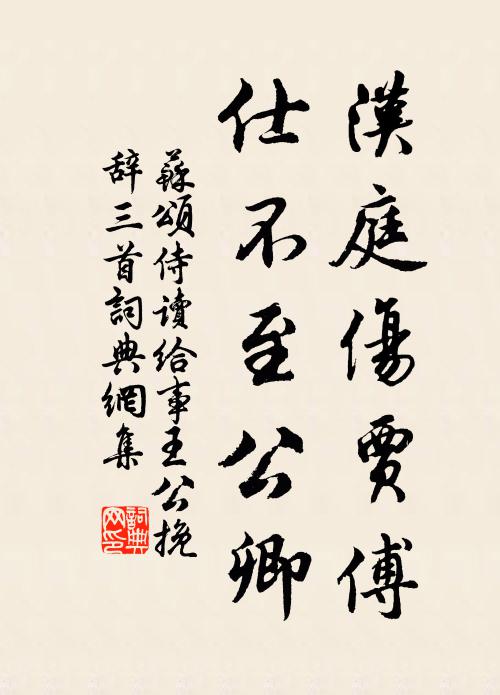 漢庭傷賈傅
仕不至公卿
蘇頌侍讀給事王公挽
辭三首詞典網集
詞典
网印